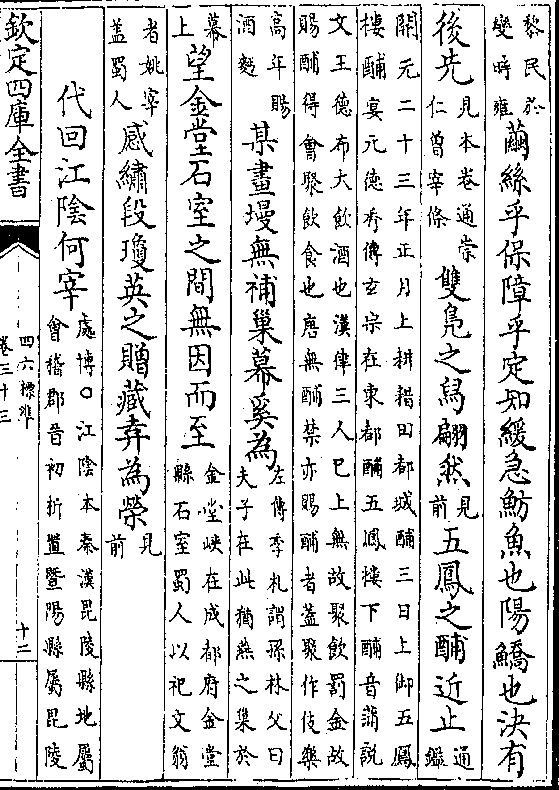 黎民於
變時雍
繭絲乎保障乎定知緩急魴魚也陽鱎也決有
後先
見本卷通崇
仁曾宰條
雙鳬之舄翩然
見
前
五鳳之酺近止
通
鑑
開元二十三年正月上耕耤田都城酺三日上御五鳳
樓酺宴元德秀傳玄宗在東都酺五鳳樓下酺音蒲説
文王德布大飲酒也漢律三人已上無故聚飲罰金故
賜酺得會聚飲食也唐無酺禁亦賜酺者蓋聚作伎樂
高年賜
酒麵
某畫墁無補巢幕奚為
左傳季札謂孫林父曰
夫子在此猶燕之巢於
幕
上
望金堂石室之間無因而至
金堂峽在成都府金堂
縣石室蜀人以祀文翁
者姚宰
蓋蜀人
感繡段瓊英之贈藏弆為榮
見
前
代回江陰何宰
處博○江陰本秦漢毘陵縣地屬
會稽郡晉初折置暨陽縣屬毘陵
欽定四庫全書
四六標準
卷三十三
十二